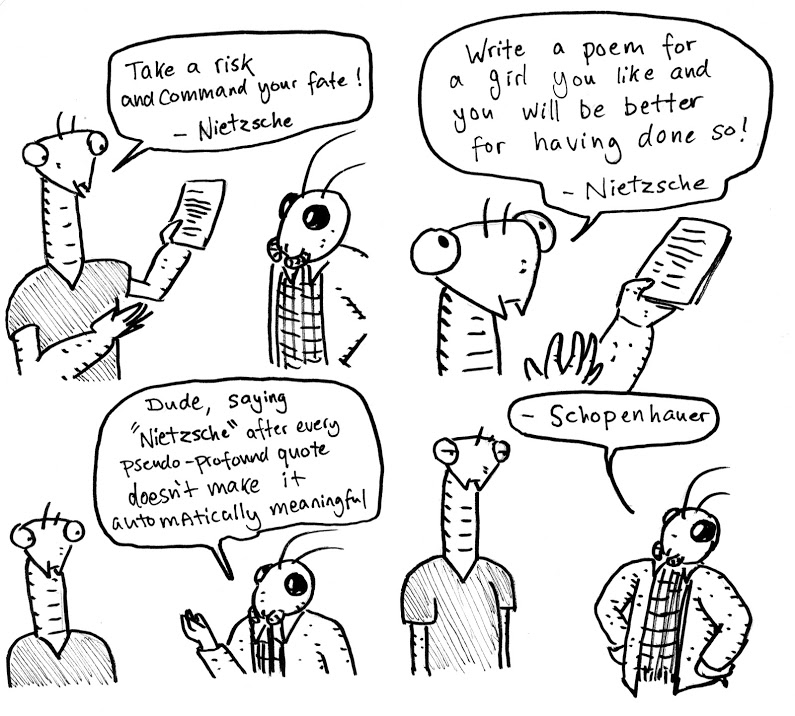 Take a risk
and command your fate!
- Nietzsche
Write a poem for
a girl you like and
you will be better
for having done so!
- Nietzsche
Dude, saying
"Nietzsche" after every
pseudo-profound quote
doesn't make it
automatically meaningful
- Schopenhauer